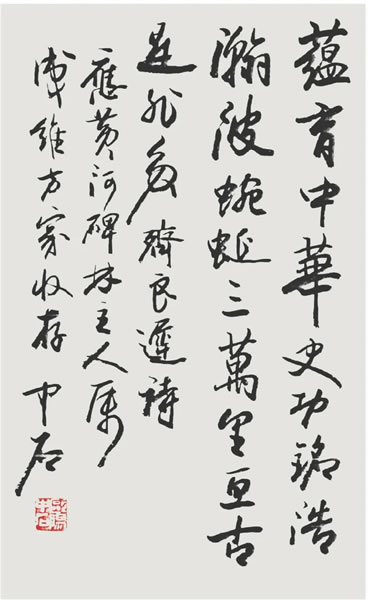 蘊育中華史功銘浩
瀚波蜿蜒三萬里亘古
是非多齊良遲詩
應黃河碑林主人屬
維方家收存中石